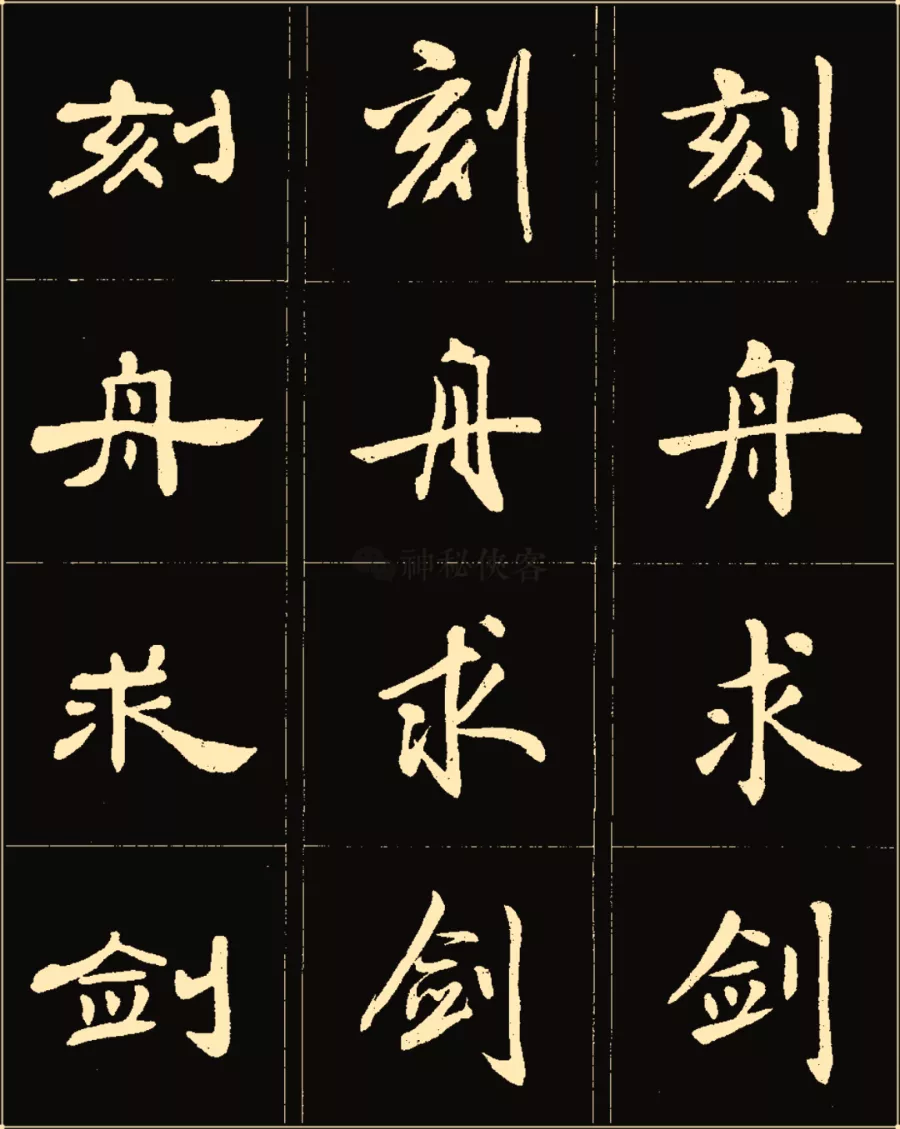 刻 刻 刻
舟 舟 舟
神秘侠客
求 求 求
剑 剑 剑